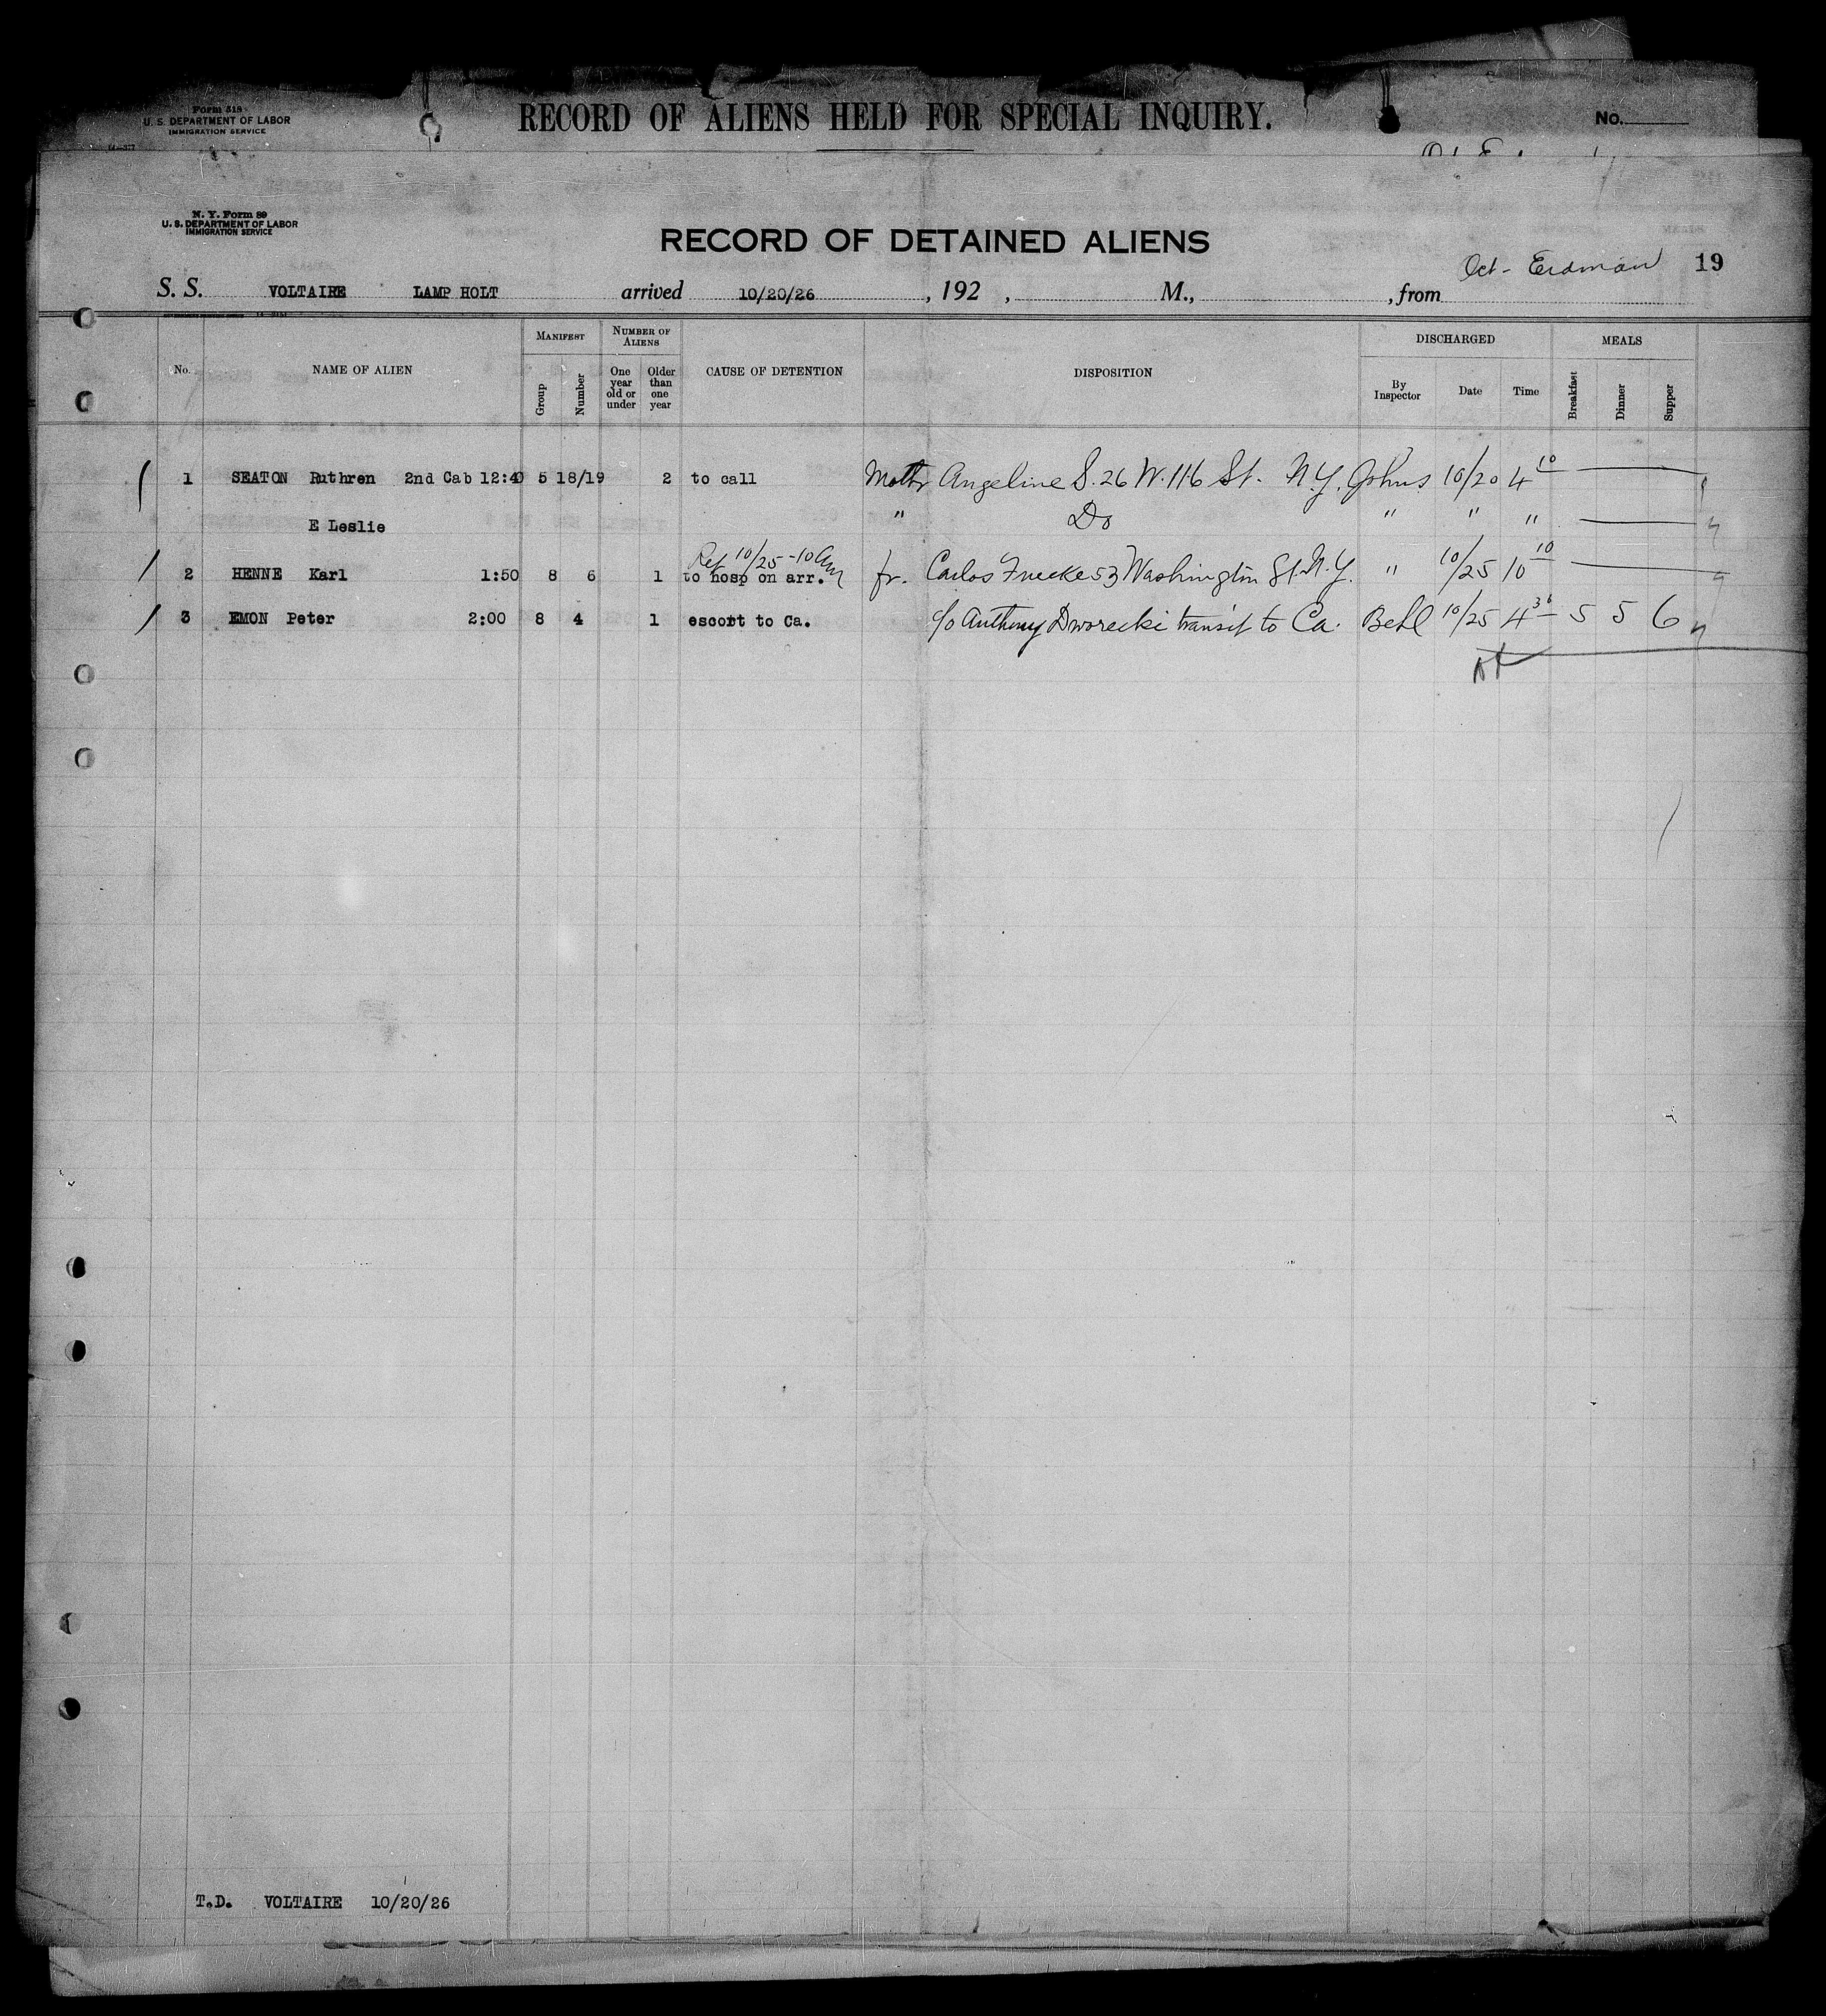 Form 318
U. S. DEPARTMENT OF LABOR
IMMIGRATION SERVICE
RECORD OF ALIENS HELD FOR SPECIAL INQUIRY.
No.
N. Y. Form 89
U. S. DEPARTMENT OF LABOR
IMMIGRATION SERVICE
RECORD OF DETAINED ALIENS
Oct - Erdman 19
S. S. VOLTAIRE LAMP HOLT arrived 10/20/26, 192 , M., , from
No. NAME OF ALIEN MANIFEST Group Number NUMBER OF ALIENS One year old or under Older than one year CAUSE OF DETENTION DISPOSITION DISCHARGED By Inspector Date Time MEALS Breakfast Dinner Supper
1 SEATON Ruthren 2nd Cab 12:40 5 18/19 2 to call Mothr Angeline S. 26 W. 116 St. N.Y. Johns 10/20 4 10
E Leslie " Do " " "
Ref 10/25 - 10 Am
2 HENNE Karl 1:50 8 6 1 to hosp on arr. fr. Carlos 53 Washington St. N.Y. " 10/25 10 10
3 EMON Peter 2:00 8 4 1 escort to Ca. c/o Anthony Dworecki transit to Ca. 10/25 4 30 5 5 6
T.D. VOLTAIRE 10/20/26